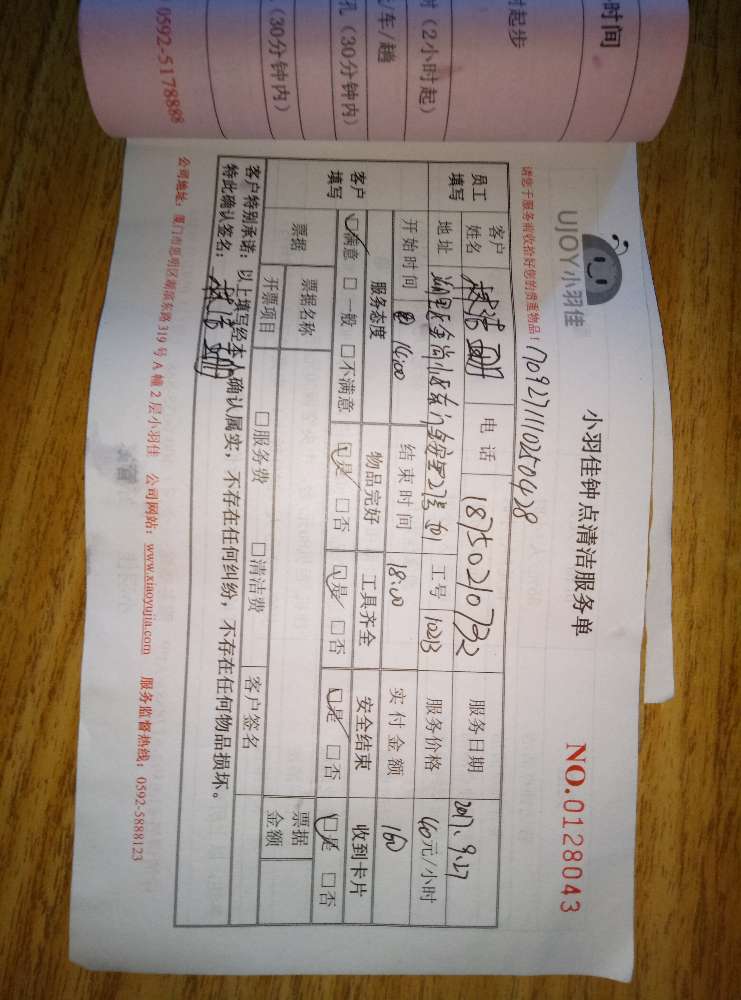 时间
时起步
时（2小时起）
车/趟
孔（30分钟内）
（30分钟内）
0592-5178888
UJOY小羽佳
小羽佳钟点清洁服务单
NO.0128043
请您于服务前收拾好您的贵重物品！
员工填写
客户姓名
电话 18750210732
服务日期 2017.9.27
地址
工号 10213
服务价格 40元/小时
开始时间 14:00
结束时间 18:00
实付金额 160
客户填写
服务态度 物品完好 工具齐全 安全结束 收到卡片
☑满意 □一般 □不满意 ☑是 □否 ☑是 □否 ☑是 □否 ☑是 □否
票据
票据名称 □服务费 □清洁费
客户签名
票据金额
开票项目
客户特别承诺：以上填写经本人确认属实，不存在任何纠纷，不存在任何物品损坏。
特此确认签名：
公司地址：厦门市思明区湖滨东路319号A幢2层小羽佳 公司网站：www.xiaoyujia.com 服务监督热线：0592-5888123